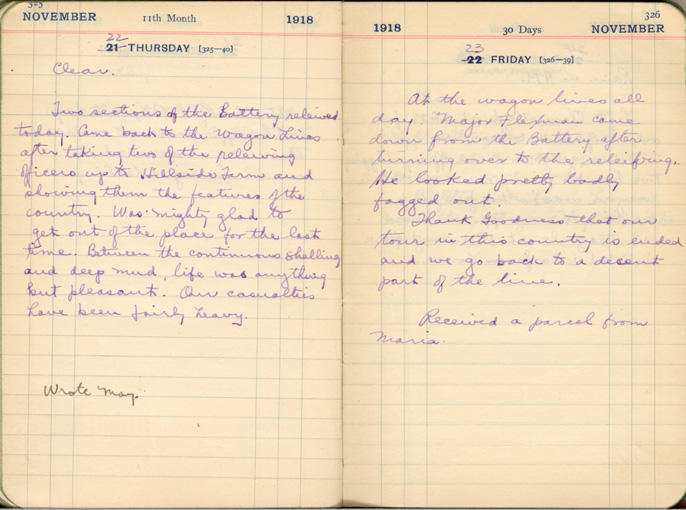 325
NOVEMBER 11th Month 1918
22
21 THURSDAY [325—40]
Clear.
Two sections of the Battery releived
today. Came back to the Wagon Lines
after taking two of the releiving
officers up to Hillside Farm and
showing them the features of the
country. Was mighty glad to
get out of the place for the last
time. Between the continuous shelling
and deep mud, life was anything
but pleasant. Our casualties
have been fairly heavy.
Wrote May.
326
1918 30 Days NOVEMBER
23
22 FRIDAY [326—39]
At the wagon lines all
day. Major came
down from the Battery after
turning over to the releifing.
He looked pretty badly
fagged out.
Thank Goodness that our
tour in this country is ended
and we go back to a decent
part of the line.
Received a parcel from
Maria.